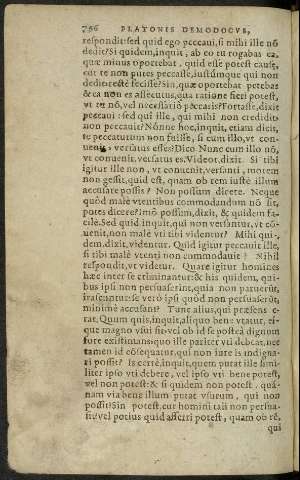 756 PLATONIS DEMODOCVS,
respondit: sed quid ego peccaui, si mihi ille nō
dedit? Si quidem, inquit, ab eo tu rogabas ea,
quæ minus oportebat, quid esse potest causæ,
cur te non putes peccasse, iustúmque qui non
dedit rectè fecisse? Sin, quæ oportebat petebas
& ea non es assecutus, qua ratione fieri potest,
vt tu nō, vel necessariò peccaris? Fortasse, dixit
peccaui: sed qui ille, qui mihi non credidit,
non peccauit? Nónne hoc, inquit, etiam dicit,
te peccaturum non fuisse, si cum illo, vt con-
uenit, versatus esses? Dico Nunc cum illo nō,
vt conuenit, versatus es. Videor, dixit. Si tibi
igitur ille non, vt conuenit, versanti, morem
non gessit, quid est, quam ob rem iustè illum
accusare possis? Non possum dicere. Neque
quòd malè vtentibus commodandum nō sit,
potes dicere? imò possum, dixit, & quidem fa-
cilè. Sed quid inquit, qui non versantur, vt cō-
uenit, non malè vti tibi videntur? Mihi qui-
dem, dixit, videntur. Quid igitur peccauit ille,
si tibi malè vtenti non commodauit? Nihil
respondit, vt videtur. Quare igitur homines
hæc inter se criminantur: & his quidem, qui-
bus ipsi non persuaserint, quia non paruerūt,
irascuntur: se verò ipsi quòd non persuaserūt,
minimè accusant? Tunc alius, qui præsens e-
rat, Quum quis, inquit, aliquo benè vtatur, ei-
que magno vsui sit: vel ob id se posteà dignum
fore existimans: quo ille pariter vti debeat, nec
tamen id cōsequatur, qui non iure is indigna-
ri possit? Is certè, inquit, quem putat ille simi-
liter ipso vti debere, vel ipso vti bene potest,
vel non potest: & si quidem non potest, quā-
nam via bene illum putat vsurum, qui non
possit? Sin potest, cur homini tali non persua-
sit: vel potius quid afferri potest, quam ob rē,
qui